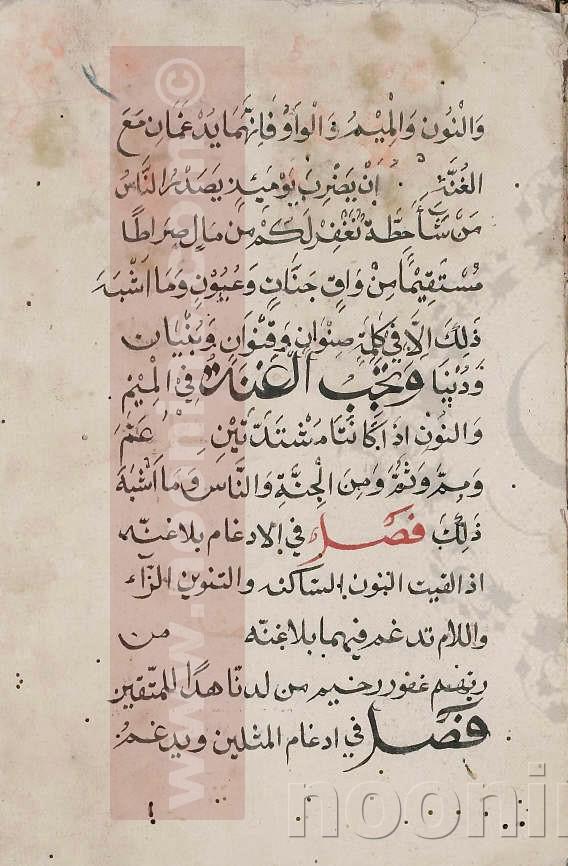 وَالنُّونِ وَالْمِيْمِ وَالْوَاوْ فَاِنَّهُمَا يُدْغَمَانِ مَعَ
الغُنَّةِ اَنْ يَضْرِبَ يَوْمَئِذٍ يَصْدُرُ النَّاسُ
مَنْ شَاءَ حِطَّةٌ نَغْفِرْ لَكُمْ مِنْ مَالٍ صِرَاطًا
مُسْتَقِيْمًا مِنْ وَاقٍ جَنَّاتٍ وَعُيُوْنٍ وَمَا اَشْبَهَ
ذٰلِكَ اِلَّا فِي كَلِمَةٍ صِنْوَانٍ وَقِنْوَانٍ وَبُنْيَان
وَدُنْيَا وَتَجِبُ الْغُنَّةُ فِي الْمِيْمِ
وَالنُّوْنِ اِذَا كَانَتَا مُشَدَّدَتَيْنِ عَمَّ
وَمِمَّ وَثُمَّ وَمِنَ الْجِنَّةِ وَالنَّاسِ وَمَا اَشْبَهَ
ذٰلِكَ فَصْلٌ فِي الادغام بلاغنه
اذا لقيت النون الساكنه والتنوين الرَّاء
واللام تدغم فيهما بلاغنّه من
ربهم غفور رحيم من لدنا هدًا للمتّقين
فَصْلٌ في ادغام المثلين ويدغم
www.noon
noonin